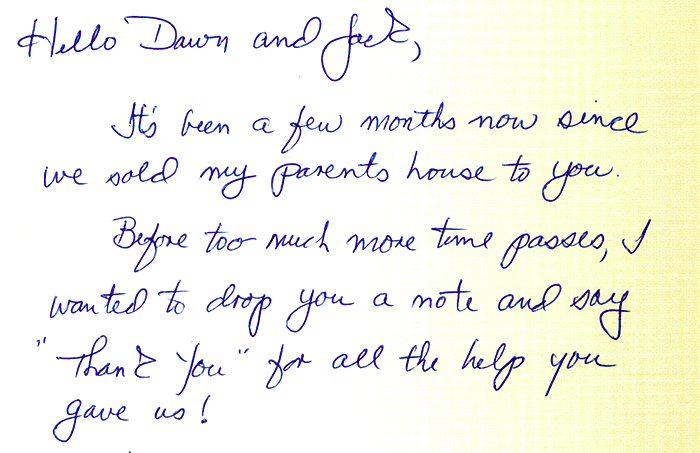 Hello Dawn and Jack,
It's been a few months now since
we sold my parents house to you.
Before too much more time passes, I
wanted to drop you a note and say
"Thank You" for all the help you
gave us!